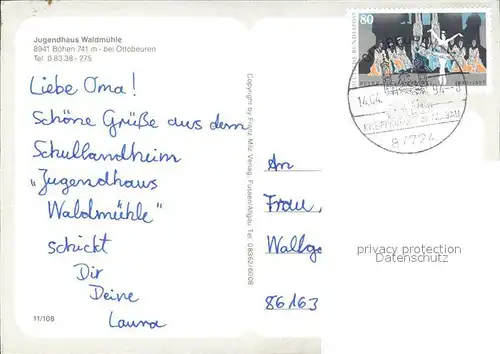 Jugendhaus Waldmühle
8941 Böhen 741 m - bei Ottobeuren
Tel 0 83 38 - 275
Liebe Oma!
Schöne Grüße aus dem
Schullandheim
„Jugendhaus
Waldmühle"
schickt
Dir
Deine
Laura
11/108
Copyright by Franz Milz Verlag, Füssen/Allgäu Tel. 08362/6008
80
14.04. 94-8
87724
An
Frau,
Wallge
86163
privacy protection
Datenschutz